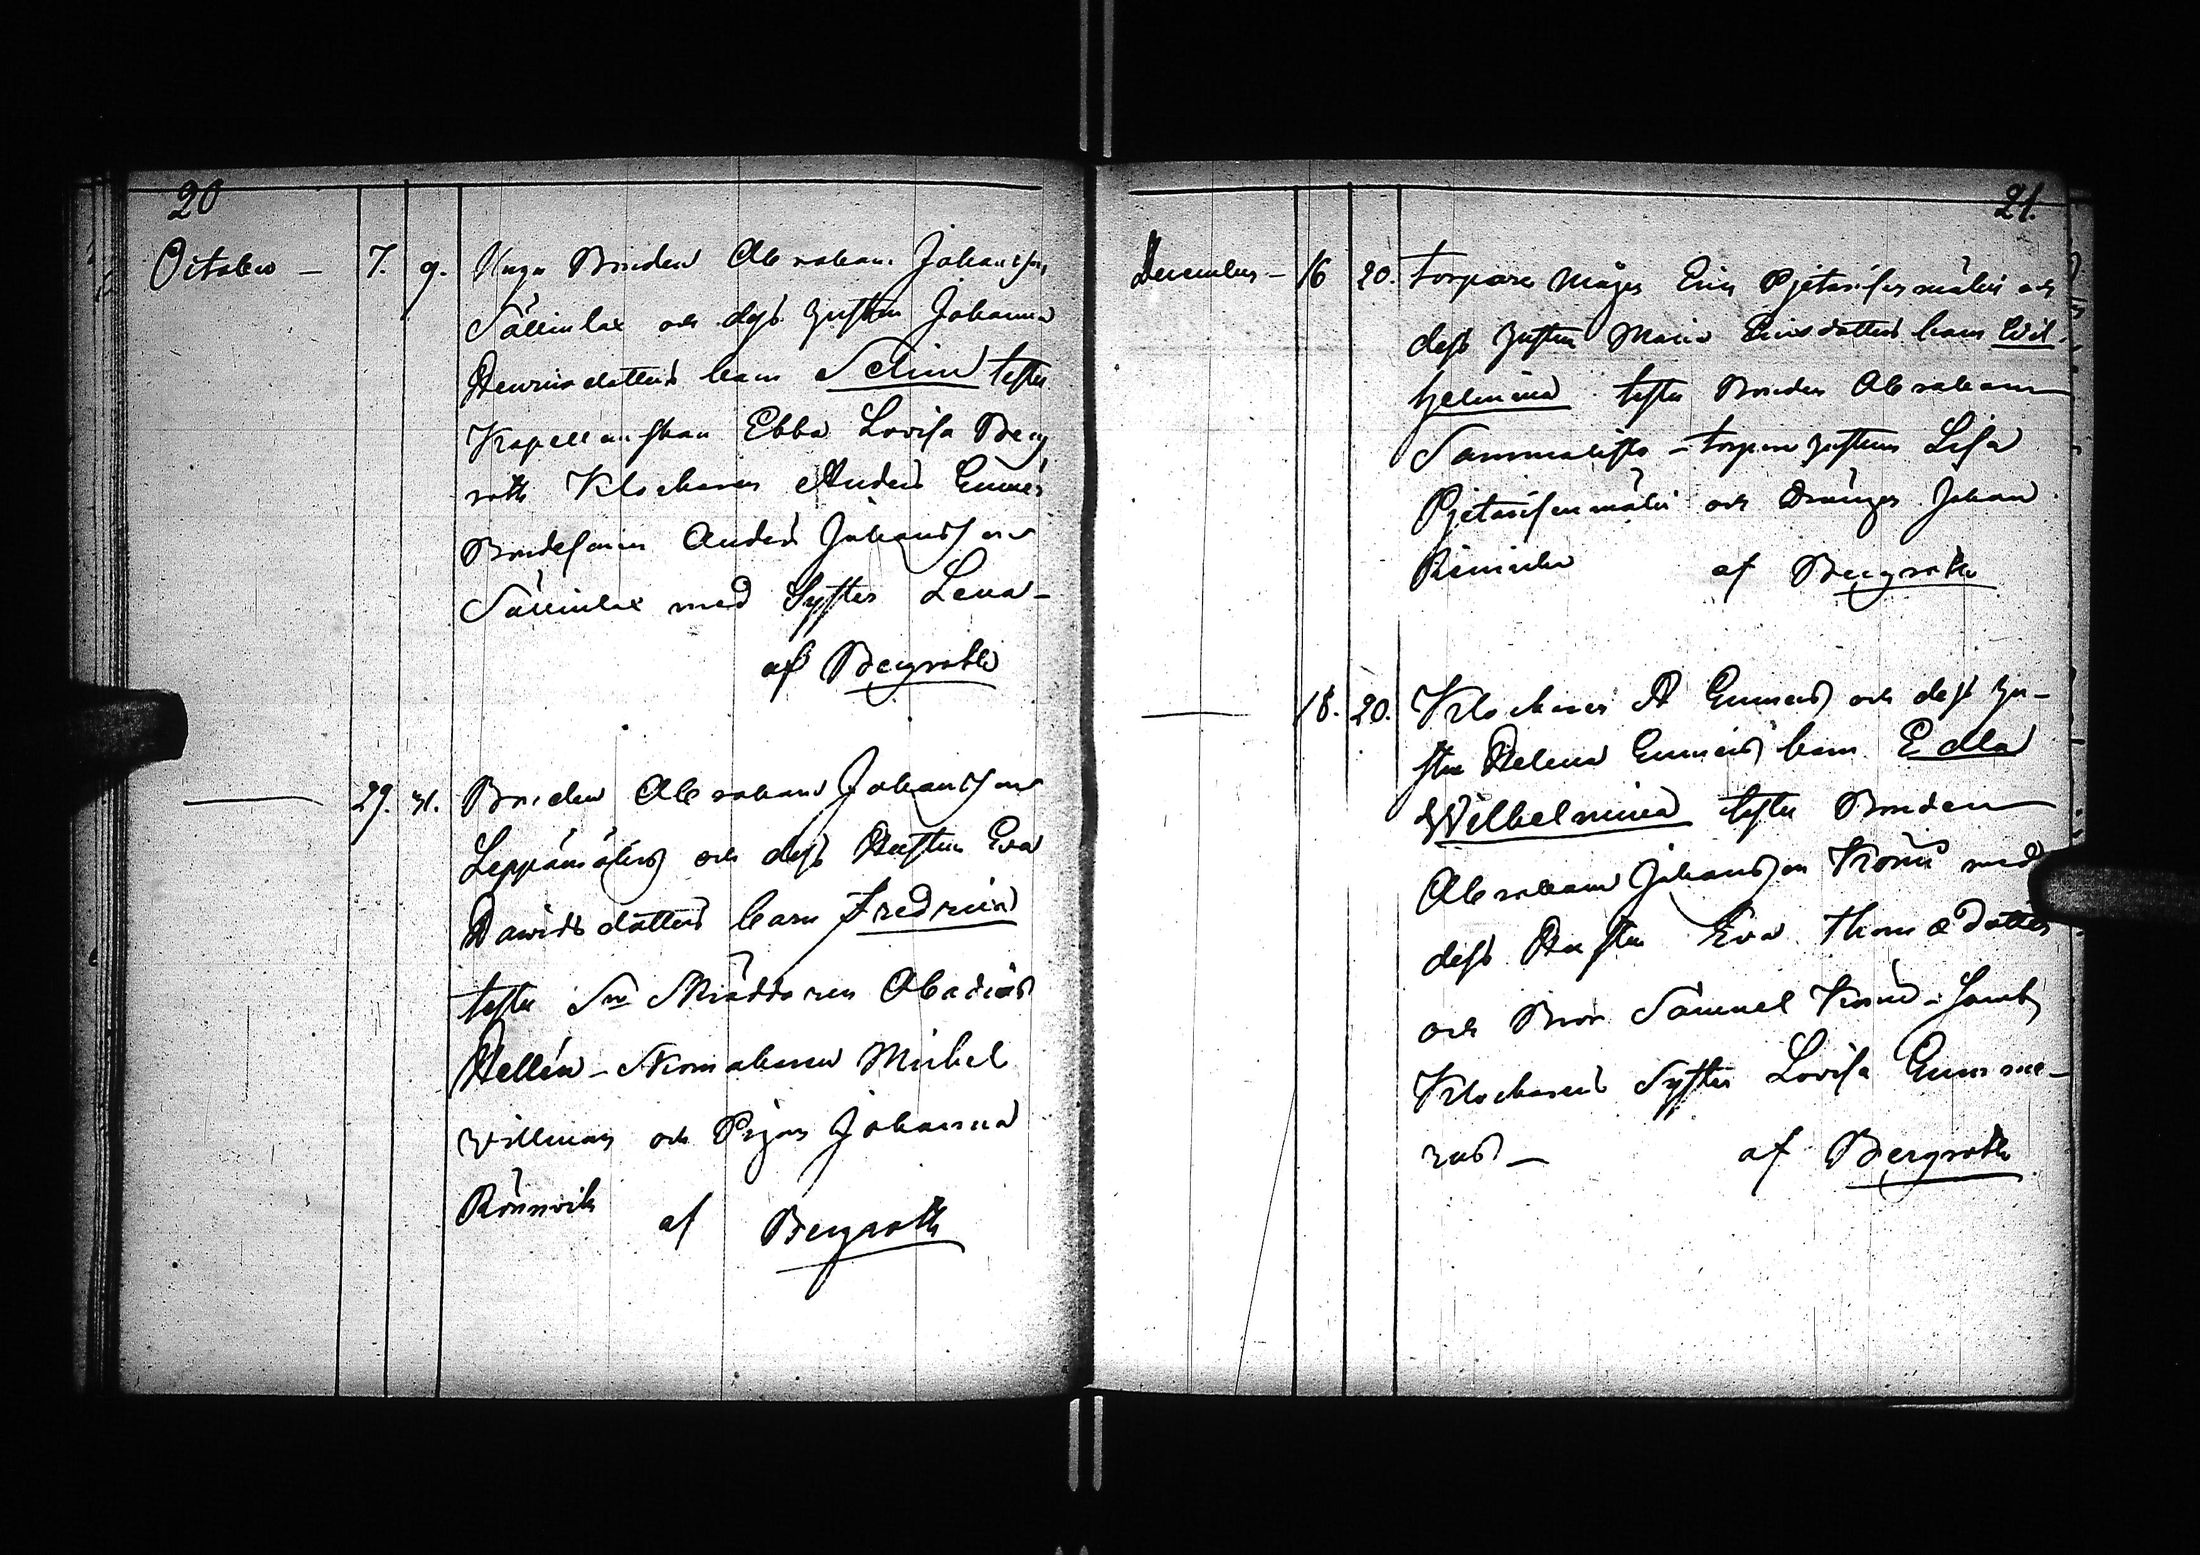 20
October – 7. 9. Unga Bonden Abraham Johansson
Sällinlax och dess hustru Johanna
Henricsdotters barn Selim testes
Kapellanskan Ebba Lovisa Berg
roth Klockaren Anders Gummerus
Bondesonen Anders Johansson
Sällinlax med Syster Lena –
af Bergroth
— 29. 31. Bonden Abraham Johansson
Leppämäkis och dess Hustru Eva
Davidsdotters barn Fredric
testes Sn Skräddaren Abadias
Hellén – Skomakaren Michel
Willman och Pigan Johanna
Rönnvik af Bergroth
21.
December – 16 20. Torpare mågen Eric Pjetarisenmäki och
dess hustru Maria Ericsdotters barn Wil-
helmina testes Bonden Abraham
Sammalisto – torpare hustrun Lisa
Pjetarisenmäki och Drängen Johan
af Bergroth
— 18. 20. Klockaren A Gummerus och dess hu-
stru Helena Gummerus barn Edla
Wilhelmina testes Bonden
Abraham Johansson Könni med
dess Hustru Eva Thomædotter
och Bror Samuel Könni – samt
Klockarens Syster Lovisa Gumme-
rus – af Bergroth